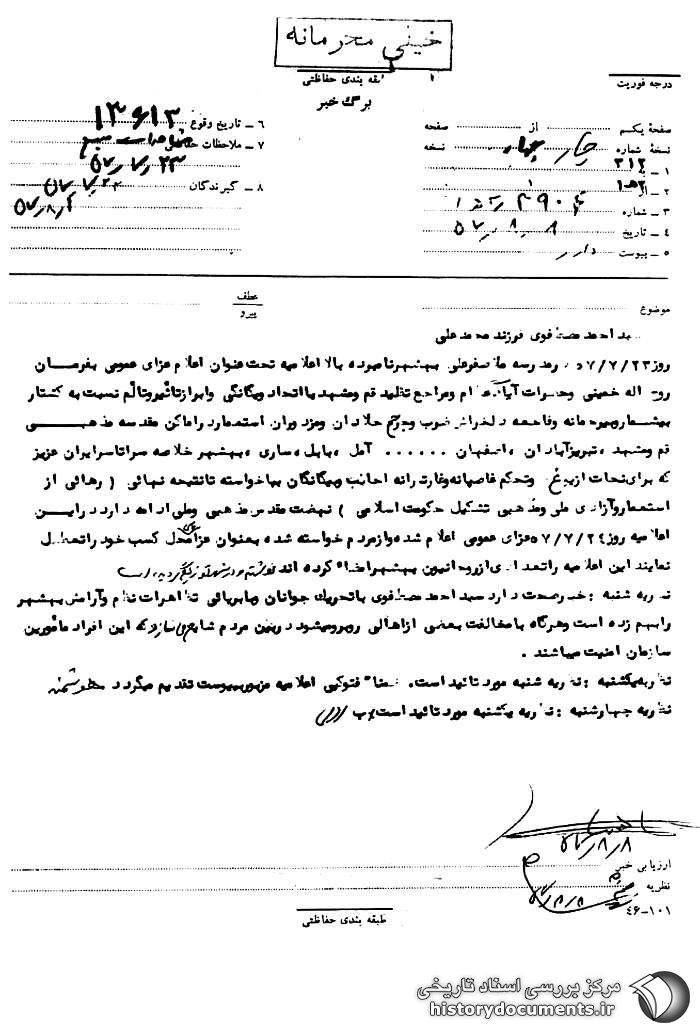 خیلی محرمانه
طبقه بندی حفاظتی
برگ خبر
درجه فوریت
صفحه یکم از صفحه
نسخه شماره چهار نسخه
۱ ـ به ۳۱۲
۲ ـ از
۳ ـ شماره
۴ ـ تاریخ ۵۷ر۸ر۸
۵ ـ پیوست دارد
۶ ـ تاریخ وقوع
۷ ـ ملاحظات منبع
۵۷ر۷ر۲۳
۸ ـ گیرندگان
موضوع
عطف
پیرو
سید احمد مصطفوی فرزند محمد علی
روز ۵۷/۷/۲۳ در مدرسه ملاصفرعلی بهشهر نامبرده بالا اعلامیه تحت عنوان اعلام عزای عمومی بفرمان
روح اله خمینی وحضرات آیات عظام ومراجع تقلید قم ومشهد با اتحاد ویگانگی وابراز تاثیر وتالم نسبت به کشتار
بیشمار وبیرحمانه وفاجعه دلخراش ضرب وجرح جلادان ومزدوران استعمار در اماکن مقدسه مذهبی
قم ومشهد ، تبریز آبادان ، اصفهان ...... آمل ، بابل ، ساری ، بهشهر خلاصه سراتاسر ایران عزیز
که برای نجات از یوغ وتحکم غاصبانه وغارت رانه اجانب وبیگانگان بپاخواسته تا نتیجه نهائی ( رهائی از
استعمار وآزادی ملی ومذهبی تشکیل حکومت اسلامی ) نهضت مقدس مذهبی وملی ادامه دارد در این
اعلامیه روز ۵۷/۷/۲۴ عزای عمومی اعلام شده واز مردم خواسته شده بعنوان عزا محل کسب خود را تعطیل
نمایند این اعلامیه را تعدادی از روحانیون بهشهر امضاء کرده اند
نظریه شنبه : خبر صحت دارد سید احمد مصطفوی با تحریک جوانان وبرپائی تظاهرات نظم وآرامش بهشهر
را بهم زده است وهرگاه با مخالفت بعضی از اهالی روبرو میشود در بین مردم شایع می سازد که این افراد مامورین
سازمان امنیت میباشند .
نظریه یکشنبه : نظریه شنبه مورد تائید است . ضمنا فتوکپی اعلامیه مزبور بپیوست تقدیم میگردد
نظریه چهارشنبه : نظریه یکشنبه مورد تائید است
۵۷ر۸ر۸
ارزیابی خبر
نظریه
۵۷ر۸ر۸
۴۶-۱۰۱
طبقه بندی حفاظتی
مرکز بررسی اسناد تاریخی
historydocuments.ir